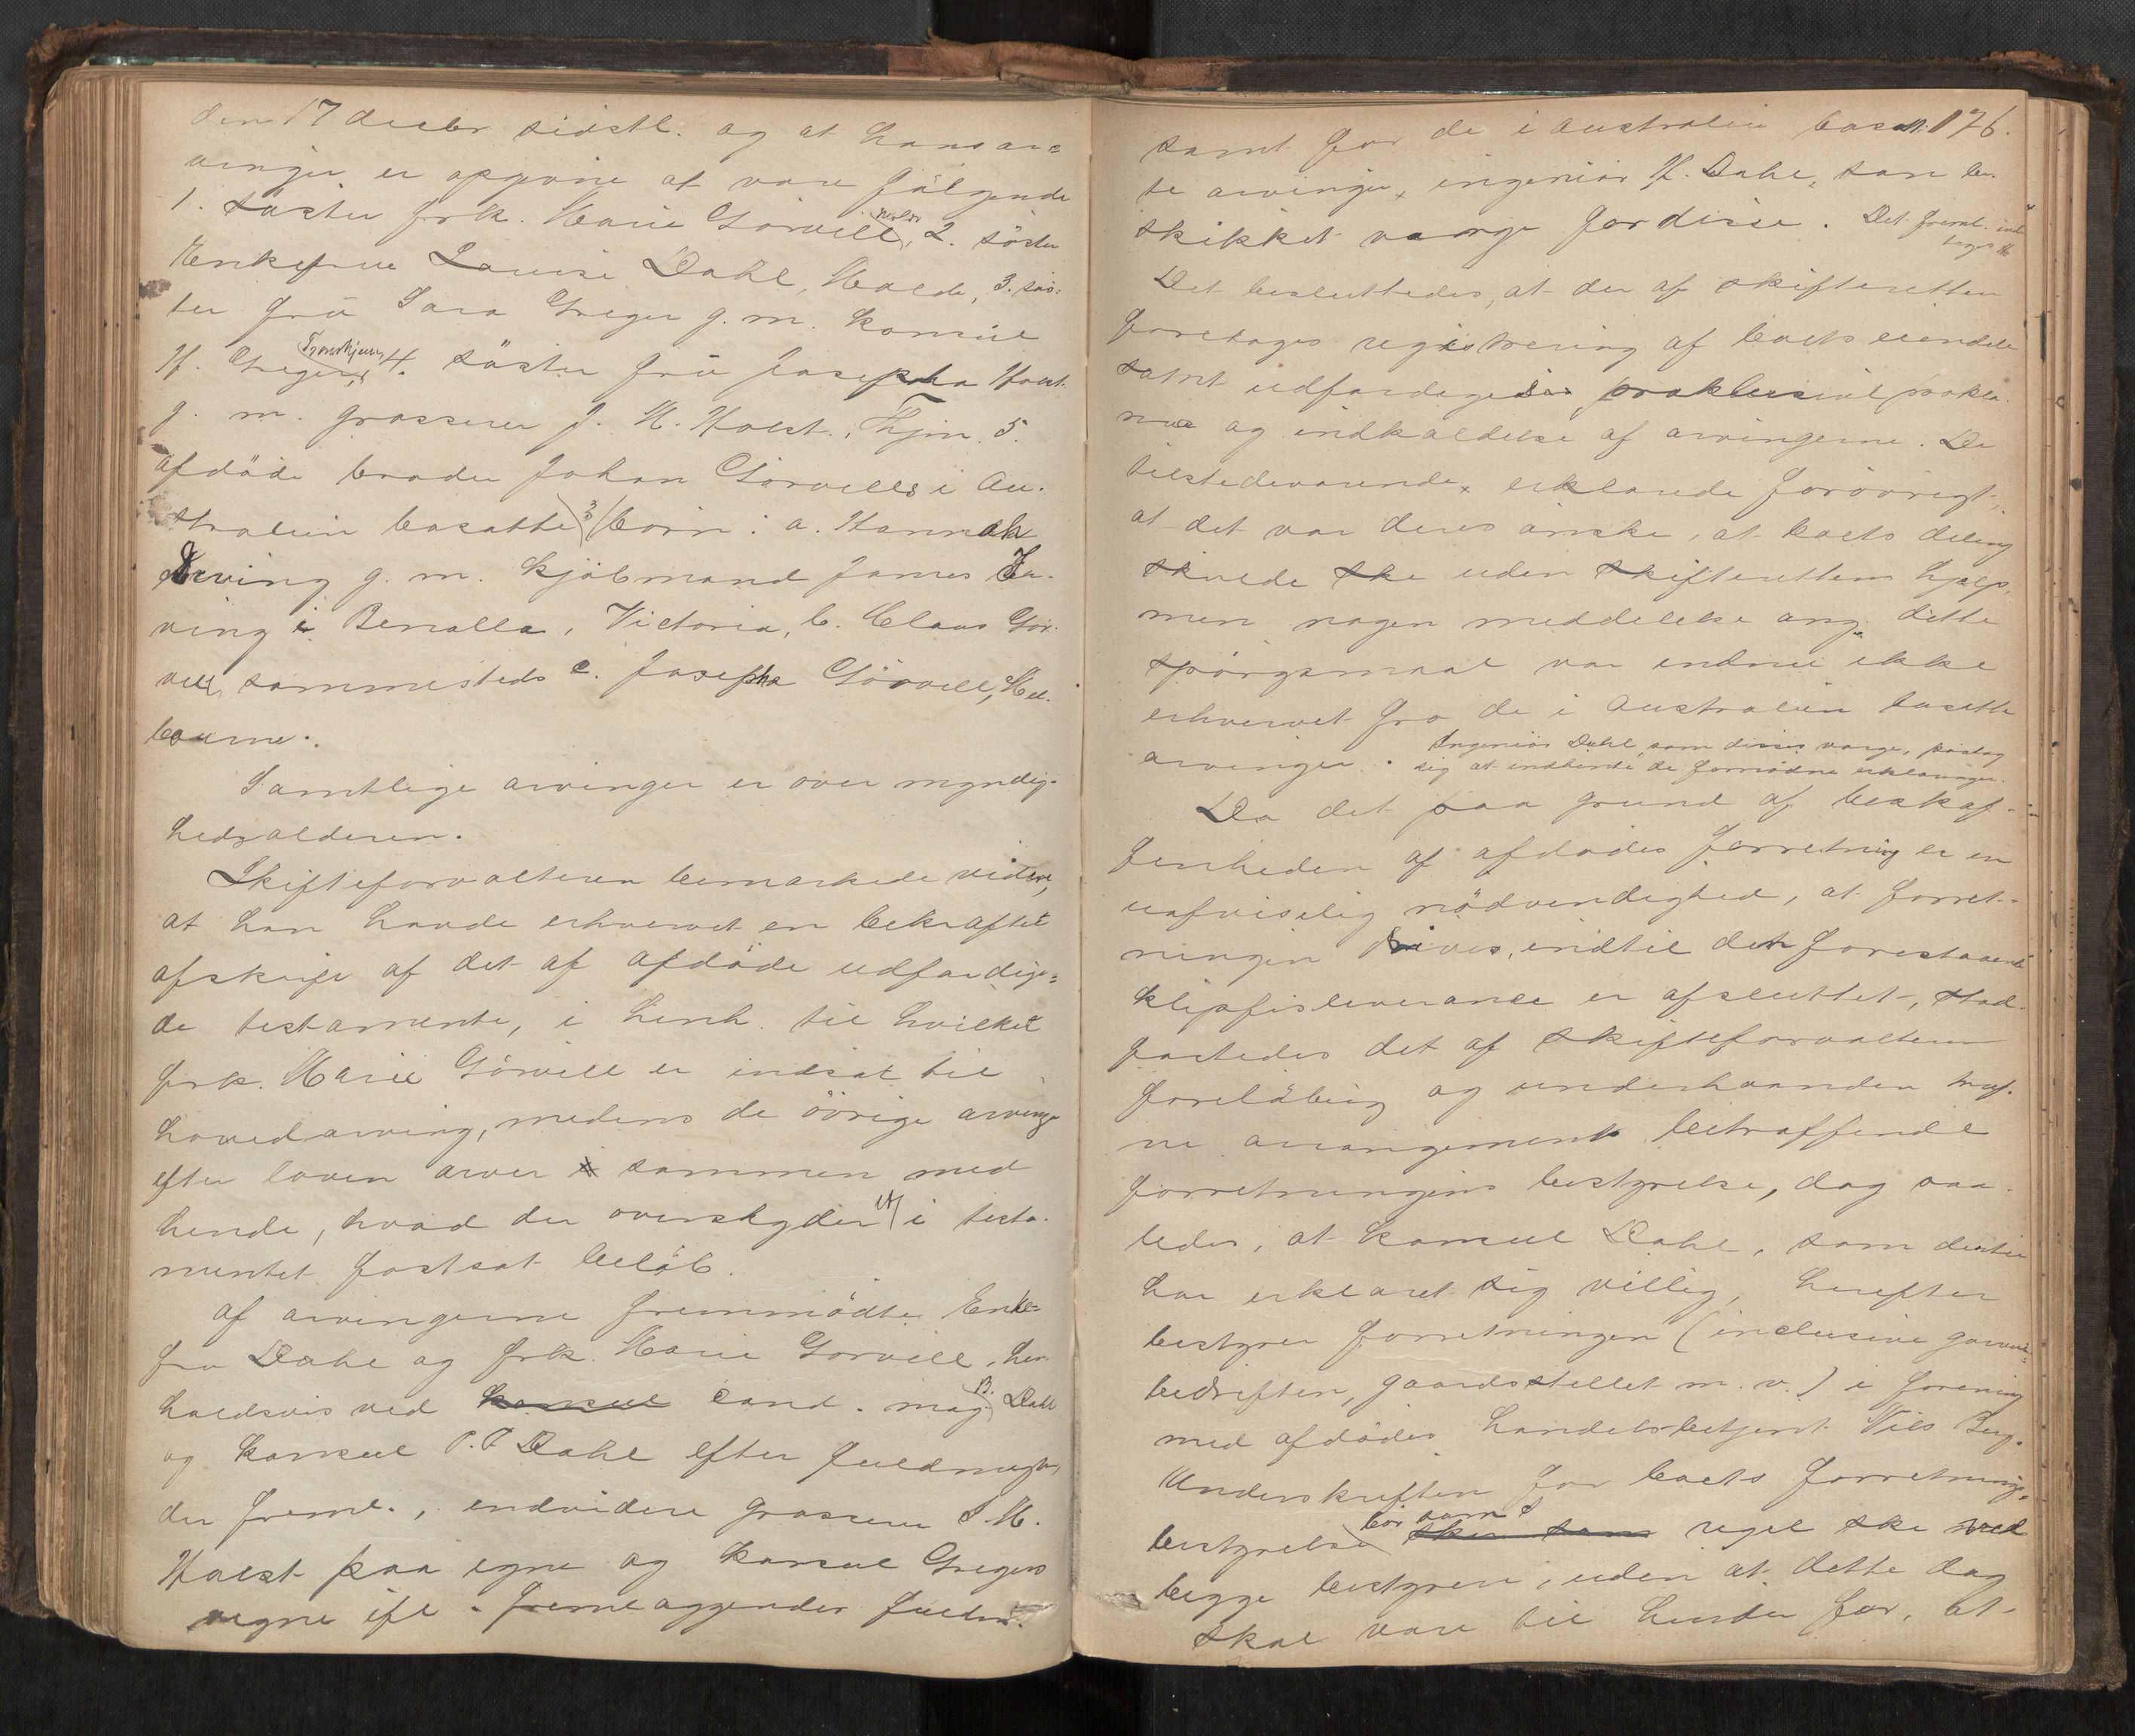 den 17 decbr sidstl. og at hans ar=
vinger er opgivne at være fölgende
1. söster frk. Marie Görvell, Molde, 2. söster
Enkefrue Lovise Dahl, Molde, 3. sös-
ter frü Sara Greger g. m. konsul
H. Greger, Trondhjem, 4. söster frü Josepha Holst
g. m. grosserer J. M. Holst, Thjm. 5.
afdöde broder Johan Görvells i Au-
stralien bosatte 3 börn: a. Hannah
Irving g. m. kjöbmand James Ir-
ving i Benalla, Victoria, b. Claus Gör-
vell, sammesteds c. Josepha Görvell, Mel-
bourne.
Samtlige arvinger er over myndig-
hedsalderen.
Skifteforvalteren bemærkede videre,
at han havde erhvervet en bekræftet
afskrift af det af afdöde udfærdige=
de testamente, i henh. til hvilket
frk. Marie Görvell er indsat til
hovedarving, medens de övrige arvinger
efter loven arver sammen med
hende, hvad der overskyder et i testa-
mentet fastsat belöb.
Af arvingerne fremmödte Enke=
fru Dahl og frk. Marie Görvell, hen-
holdsvis ved konsul cand. mag. B. Dahl
og konsul P. P. Dahl efter fuldmagt,
der freml., endvidere grosserer J. M.
Holst paa egne og konsul Gregers
vegne ifl. fremlæggendes fuldm.
176.
samt for de i Australien bosat-
te arvinger, ingeniör H. Dahl, som be-
skikket værge for disse. Det freml. ind-
tages
Det besluttedes, at der af skifteretten
foretages registrering af boets eiendele
samt udfærdiges proklusivt prokla-
ma og indkaldelse af arvingerne. De
tilstedeværende erklærede forövrigt,
at det var deres önske, at boets deling
skulde ske uden skifterettens hjælp,
men nogen meddelelse ang. dette
spörgsmaal var endnu ikke
erhvervet fra de i Australien bosatte
arvinger. Ingeniör Dahl, som disses værge, paatog
sig at indhente de fornödne erklæringer.
Da det paa grund af beskaf-
fenheden af afdödes forretning er en
uafviselig nödvendighed, at forret-
ningen drives, indtil den forestaaende
klipfisleverance er afsluttet, stad-
fæstedes det af skifteforvalteren
foreläbig og underhaanden truf-
ne arrangement betræffende
forretningens bestyrelse, dog saa-
ledes, at konsul Dahl, som dertil
har erklæret sig villig, herefter
bestyrer forretningen (inclusive garveri-
bedriften, gaardsstellet m. v.) i forening
med afdödes handelsbetjent Nils Berg.
Underskriften for boets forretnings-
bestyrelse bör som sker som regel ske ved
begge bestyrere, uden at dette dog
skal være til hinder for, at